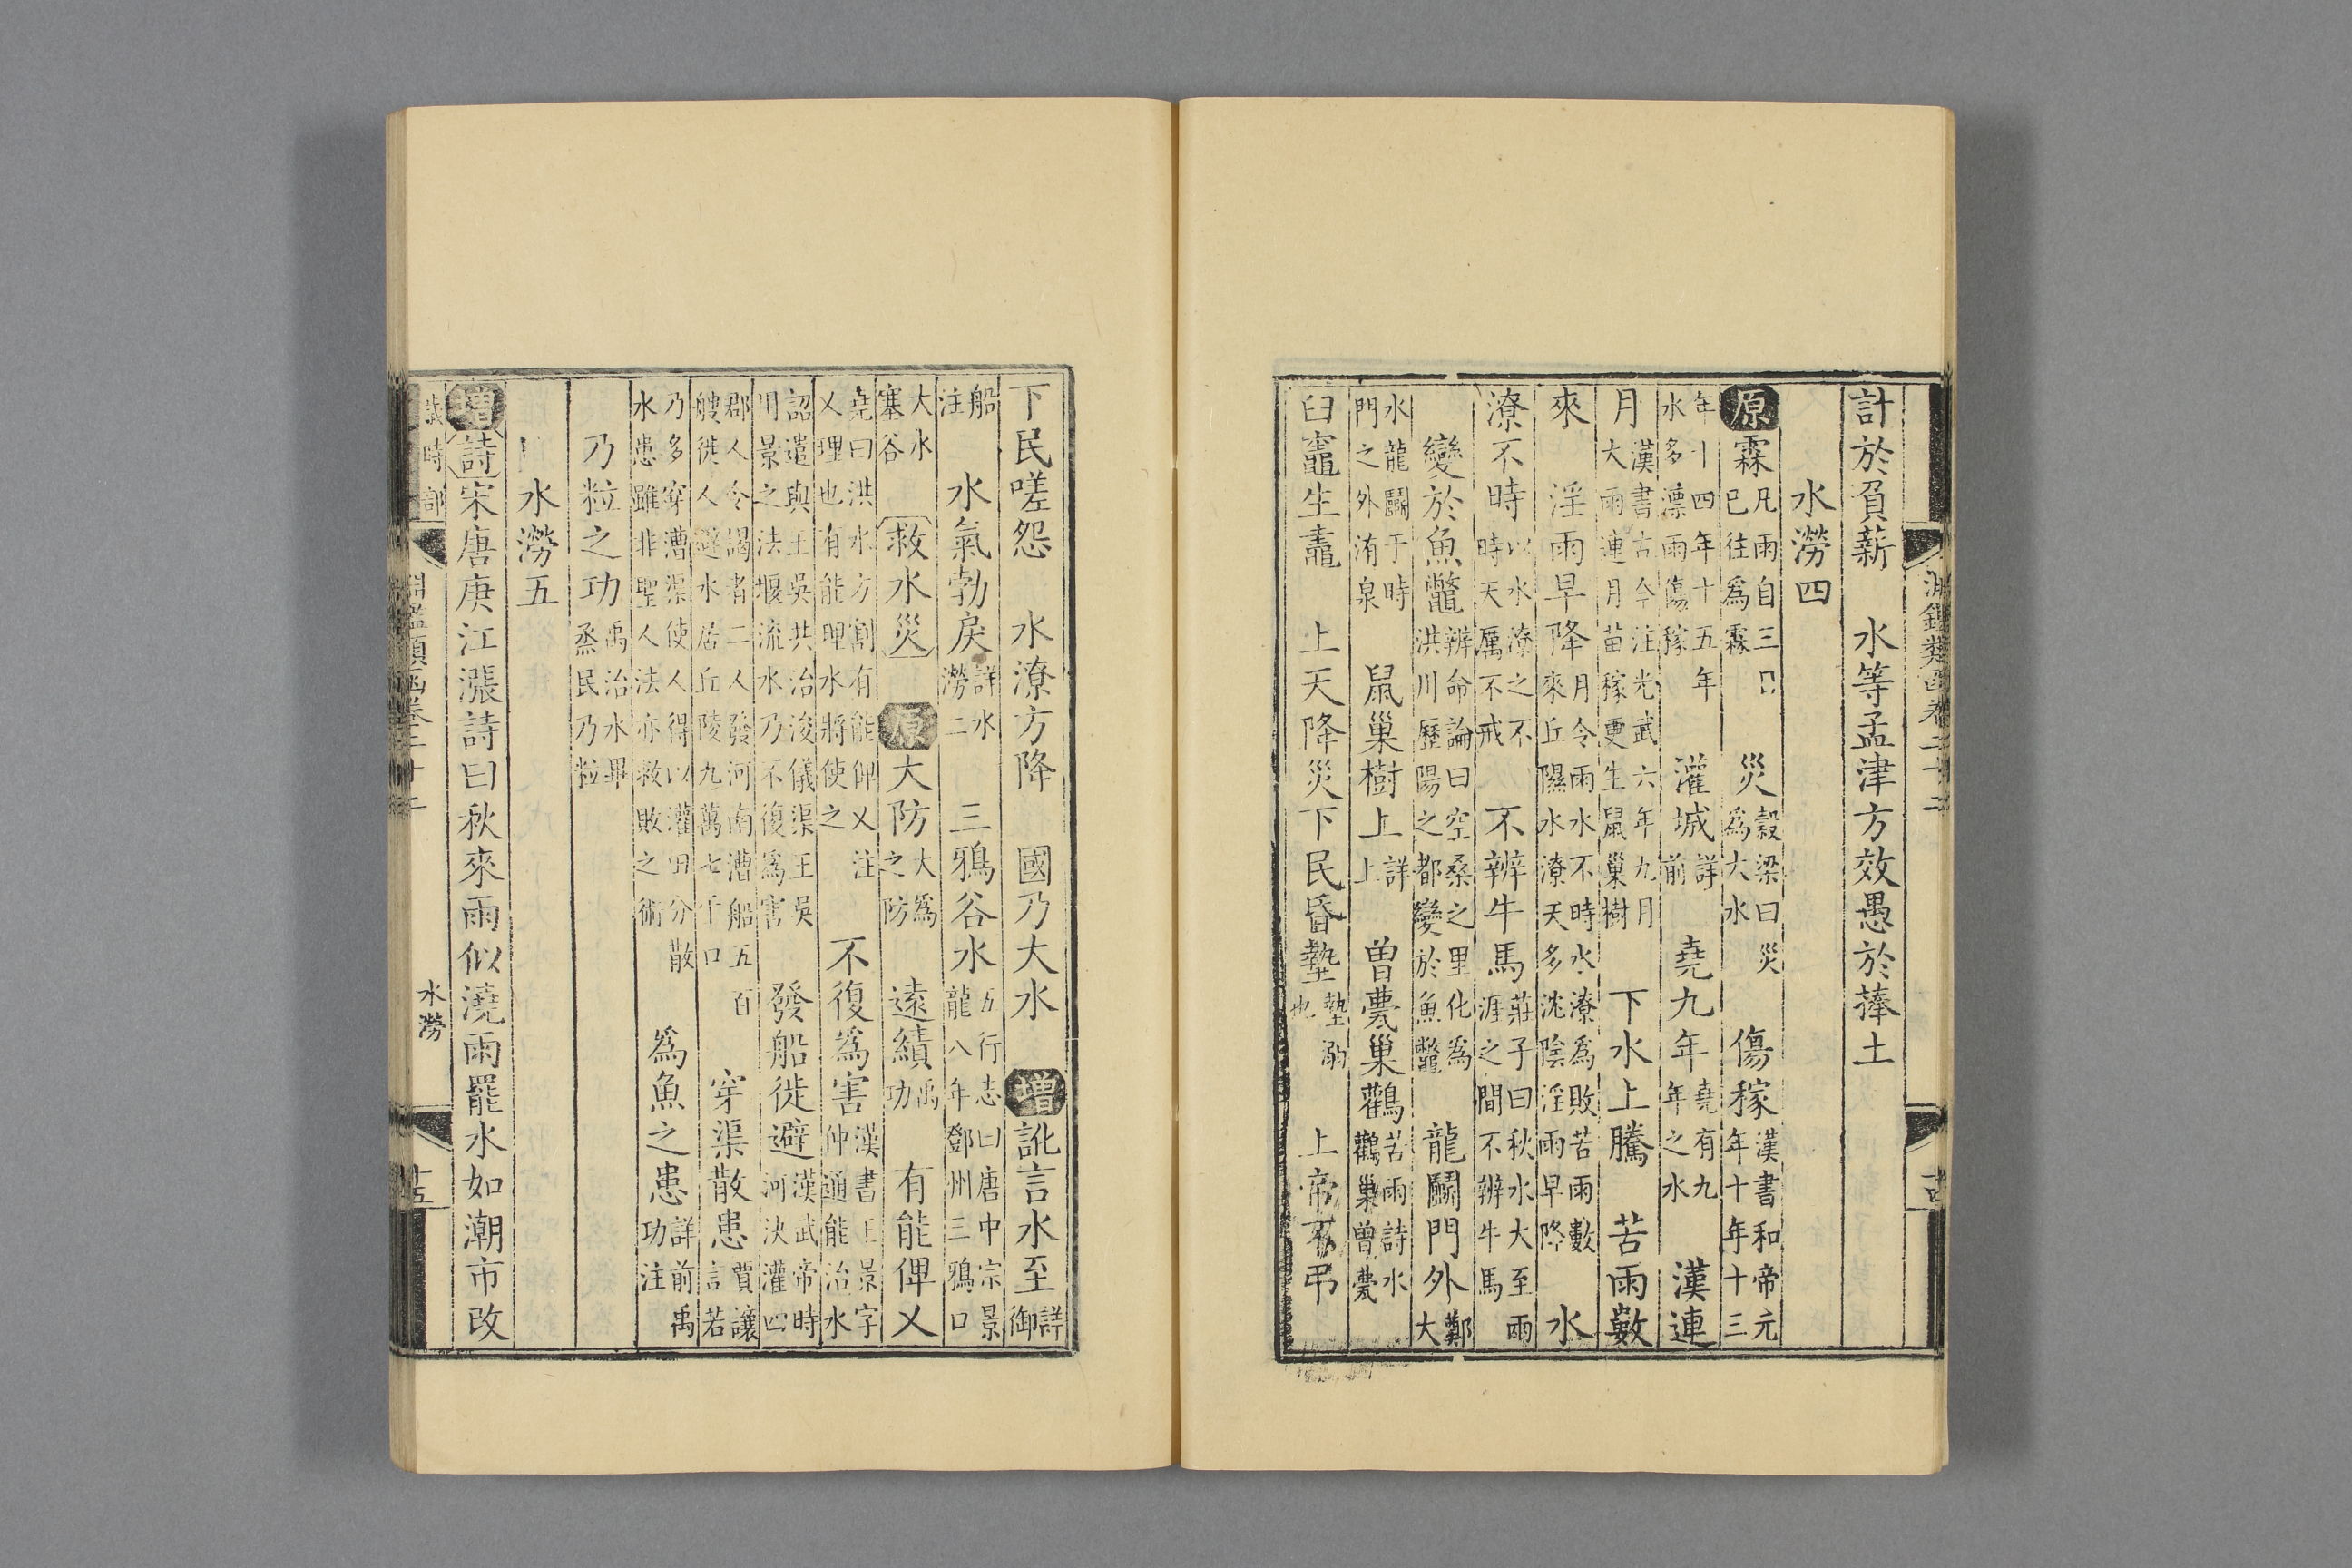 計於負薪　水等孟津方效愚於捧土
水澇四
原霖凡雨自三日已往爲霖　災穀梁曰災爲大水　傷稼漢書和帝元年十年十三
年十四年十五年水多漂雨傷稼　灌城詳前　堯九年堯有九年之水　漢連
月漢書古今注光武六年九月大雨連月苗稼更生鼠巢樹　下水上騰　苦雨數
來　淫雨早降月令雨水不時水潦爲敗苦雨數來丘隰水潦天多沈陰淫雨早降　水
潦不時以水潦之不時天厲不戒　不辨牛馬莊子曰秋水大至兩涯之間不辨牛馬
變於魚鼈辨命論曰空桑之里化爲洪川歷陽之都變於魚鼈　龍鬭門外鄭大
水龍鬭于時門之外洧泉　鼠巢樹上詳上　曾甍巢鸛苦雨詩水鸛巢曾甍
臼竈生鼃　上天降災下民昏墊墊溺也　上帝不弔
下民嗟怨　水潦方降　國乃大水　增訛言水至詳御
船注　水氣勃戾詳水澇二　三鴉谷水五行志曰唐中宗景龍八年鄧州三鴉口
大水塞谷　救水災　原大防大爲之防　遠績禹功　有能俾乂
堯曰洪水方割有能俾乂注乂理也有能理水將使之　不復爲害漢書王景字仲通能治水
詔遣與王吳共治浚儀渠王吳用景之法堰流水乃不復爲害　發船徙避漢武帝時河決灌四
郡人令謁者二人發河南漕船五百艘徙人避水居丘陵九萬七千口　穿渠散患賈讓言若
乃多穿漕渠使人得以灌田分散水患雖非聖人法亦救敗之術　爲魚之患詳前禹功注
乃粒之功禹治水畢烝民乃粒
水澇五
增詩宋唐庚江漲詩曰秋來雨似澆雨罷水如潮市改
淵鑑類函卷二十二
水澇
十五